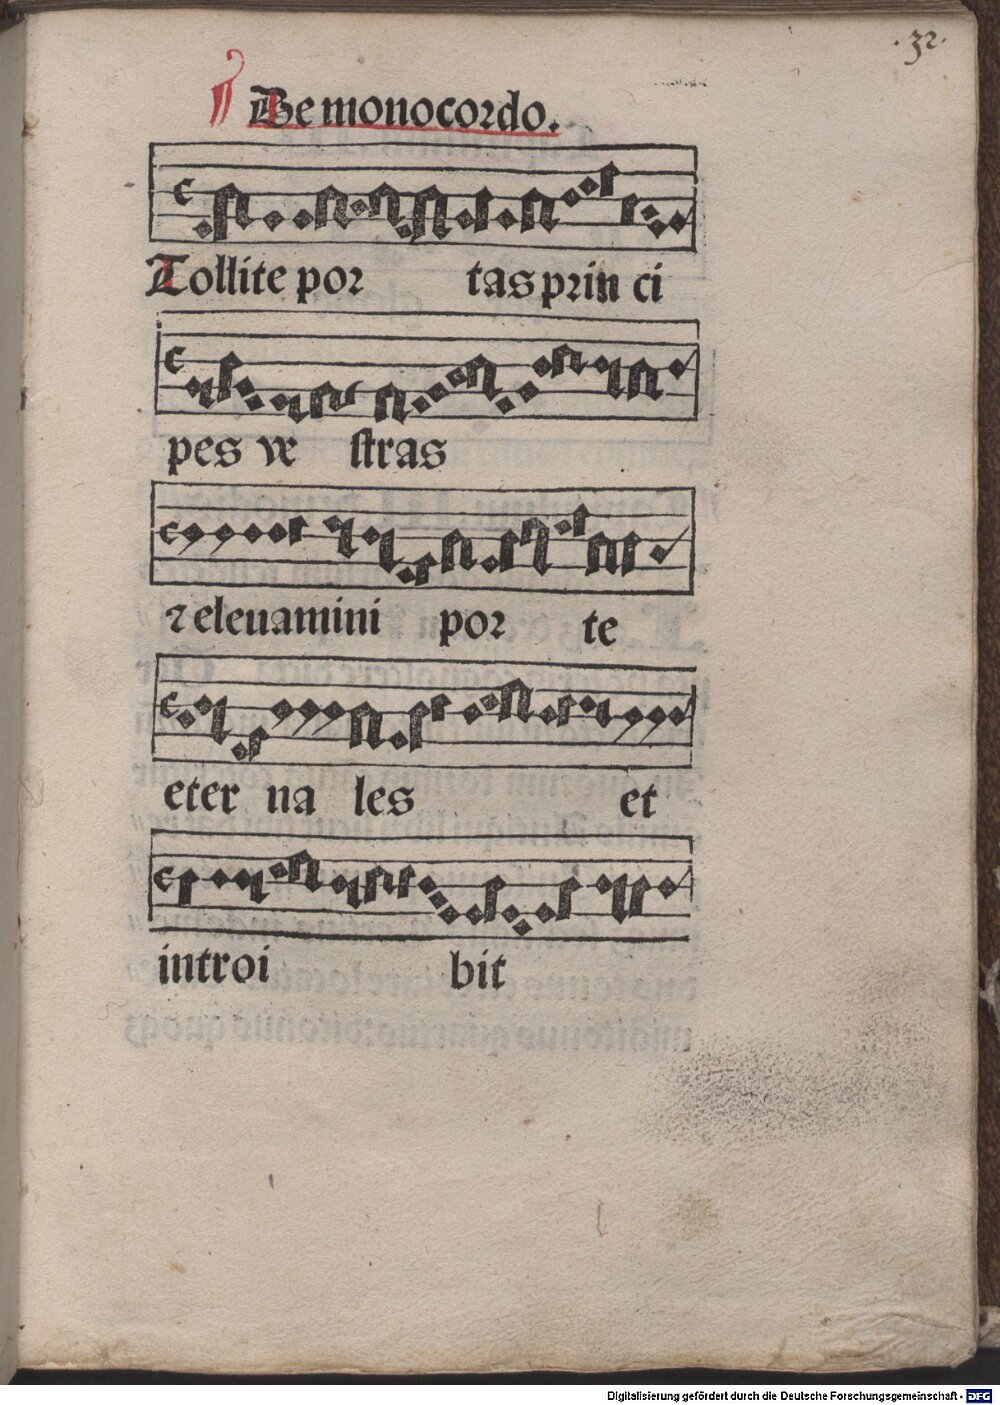 .32.
¶ De monocordo.
Tollite por tas prin ci
pes ve stras
⁊ eleuamini por te
eter na les et
introi bit
Digitalisierung gefördert durch die Deutsche Forschungsgemeinschaft - DFG